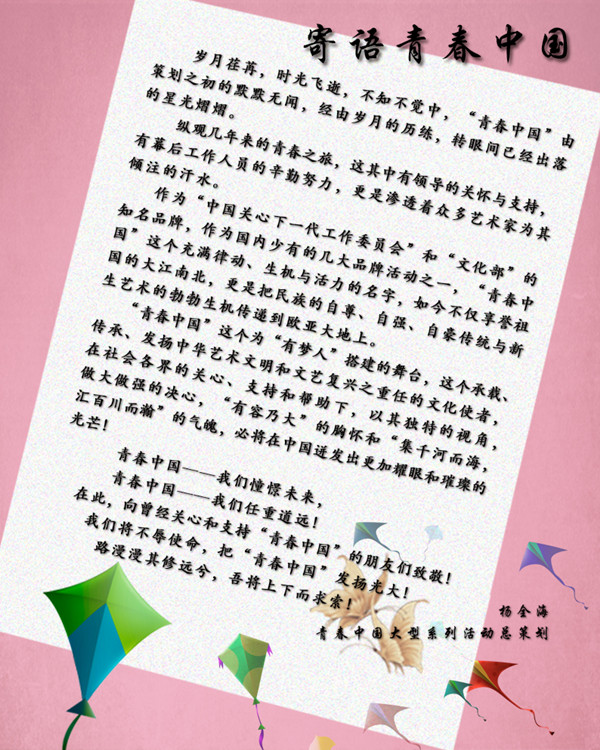 寄语青春中国
岁月荏苒，时光飞逝，不知不觉中，“青春中国”由
策划之初的默默无闻，经由岁月的历练，转眼间已经出落
的星光熠熠。
纵观几年来的青春之旅，这其中有领导的关怀与支持，
有幕后工作人员的辛勤努力，更是渗透着众多艺术家为其
倾注的汗水。
作为“中国关心下一代工作委员会”和“文化部”的
知名品牌，作为国内少有的几大品牌活动之一，“青春中
国”这个充满律动、生机与活力的名字，如今不仅享誉祖
国的大江南北，更是把民族的自尊、自强、自豪传统与新
生艺术的勃勃生机传递到欧亚大地上。
“青春中国”这个为“有梦人”搭建的舞台，这个承载、
传承、发扬中华艺术文明和文艺复兴之重任的文化使者，
在社会各界的关心、支持和帮助下，以其独特的视角，
做大做强的决心，“有容乃大”的胸怀和“集千河而海，
汇百川而瀚”的气魄，必将在中国迸发出更加耀眼和璀璨的
光芒！
青春中国——我们憧憬未来，
青春中国——我们任重道远！
在此，向曾经关心和支持“青春中国”的朋友们致敬！
我们将不辱使命，把“青春中国”发扬光大！
路漫漫其修远兮，吾将上下而求索！
杨全海
青春中国大型系列活动总策划